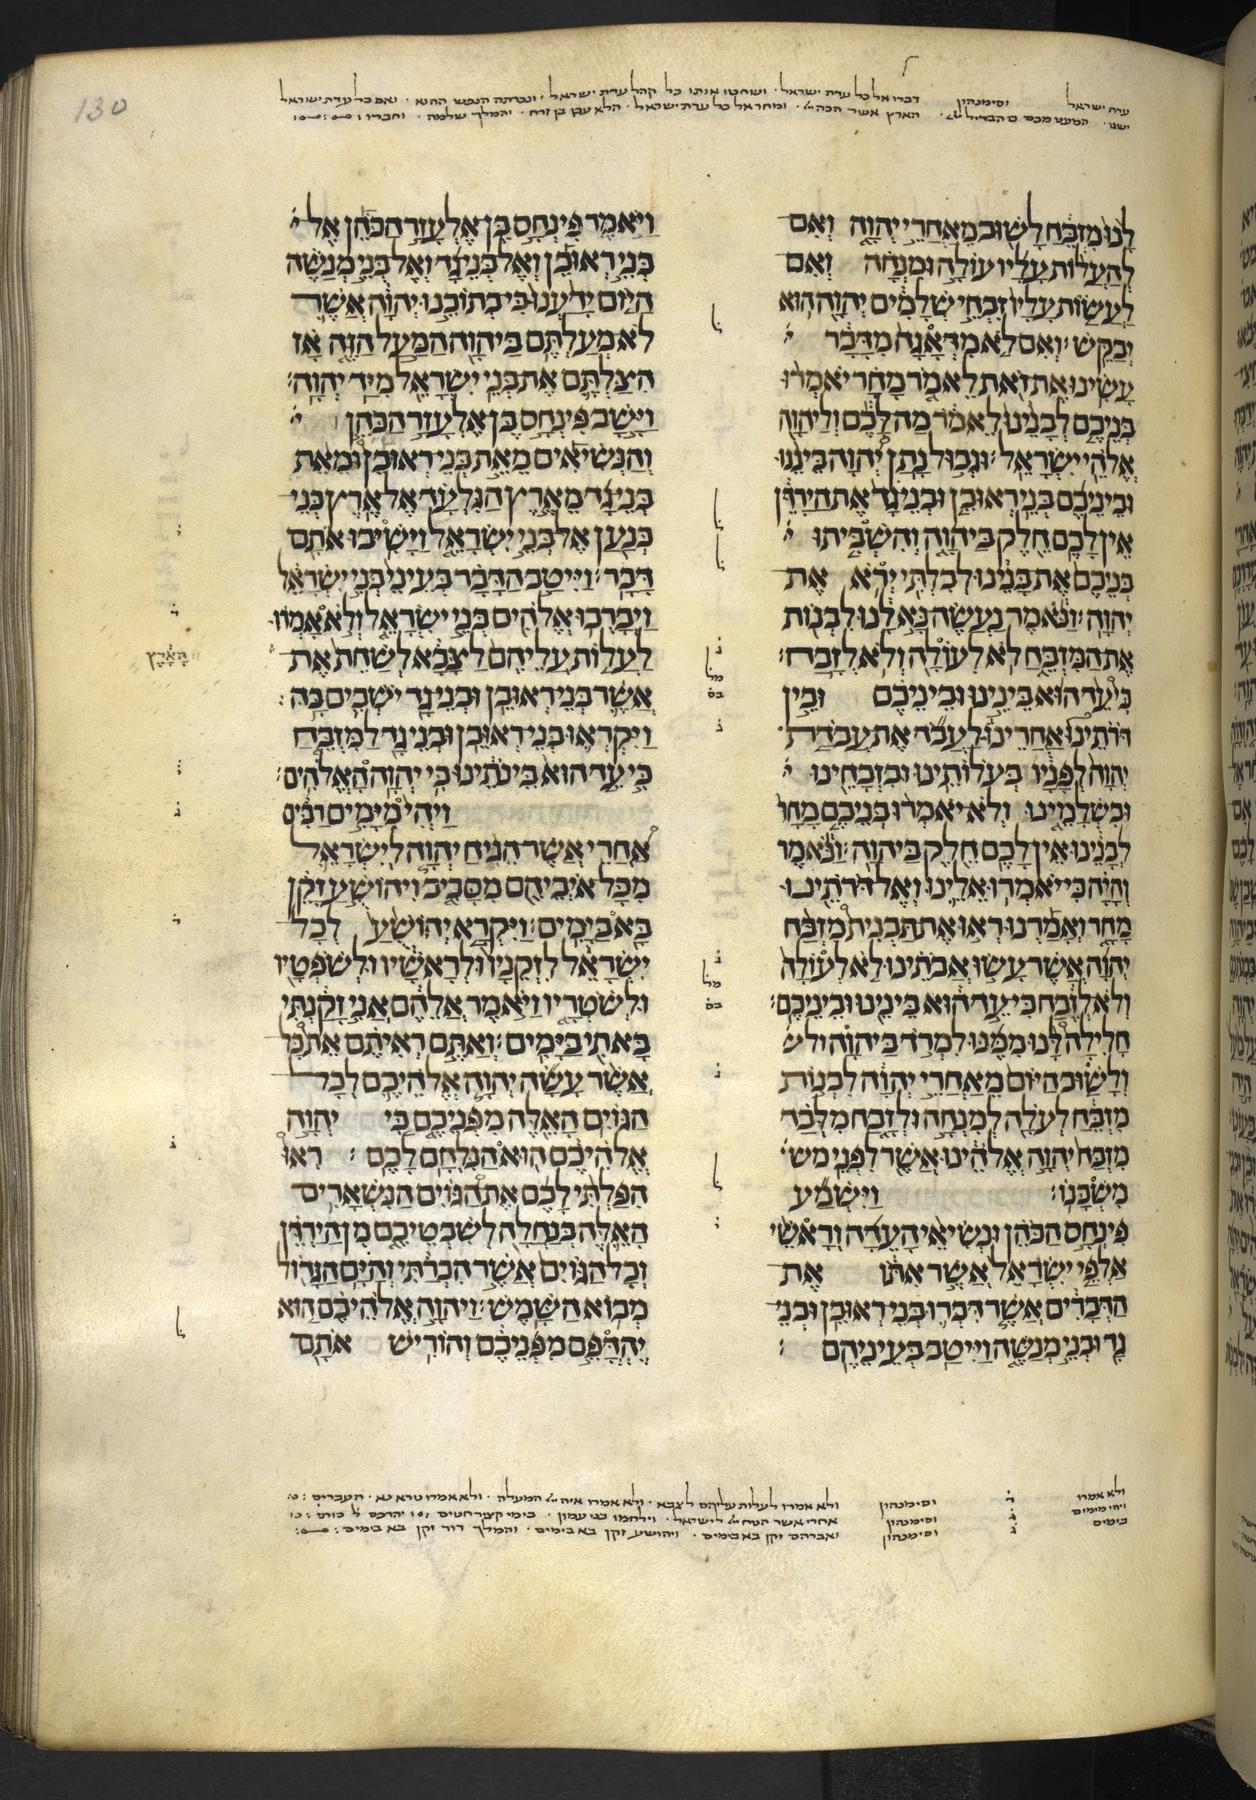 130
עדת ישראל וסימנהון דברו אל כל עדת ישראל · ושחטו אותו כל קהל עדת ישראל · ונכרתה הנפש ההוא · ואם כל עדת ישראל
ישגו · המעט מכם כי הבדיל · הארץ אשר הכה · ומחר אל כל עדת ישראל · הלא עכן בן זרח · והמלך שלמה · וחברו
לָנוּ מִזְבֵּחַ לָשׁוּב מֵאַחֲרֵי יְהוָה וְאִם
לְהַעֲלוֹת עָלָיו עוֹלָה וּמִנְחָה וְאִם
לַעֲשׂוֹת עָלָיו זִבְחֵי שְׁלָמִים יְהוָה הוּא
יְבַקֵּשׁ׃ וְאִם לֹא מִדְּאָגָה מִדָּבָר
עָשִׂינוּ אֶת זֹאת לֵאמֹר מָחָר יֹאמְרוּ
בְנֵיכֶם לְבָנֵינוּ לֵאמֹר מַה לָּכֶם וְלַיהוָה
אֱלֹהֵי יִשְׂרָאֵל׃ וּגְבוּל נָתַן יְהוָה בֵּינֵנוּ
וּבֵינֵיכֶם בְּנֵי רְאוּבֵן וּבְנֵי גָד אֶת הַיַּרְדֵּן
אֵין לָכֶם חֵלֶק בַּיהוָה וְהִשְׁבִּיתוּ
בְנֵיכֶם אֶת בָּנֵינוּ לְבִלְתִּי יְרֹא אֶת
יְהוָה׃ וַנֹּאמֶר נַעֲשֶׂה נָּא לָנוּ לִבְנוֹת
אֶת הַמִּזְבֵּחַ לֹא לְעוֹלָה וְלֹא לְזָבַח׃
כִּי עֵד הוּא בֵּינֵינוּ וּבֵינֵיכֶם וּבֵין
דֹּרֹתֵינוּ אַחֲרֵינוּ לַעֲבֹד אֶת עֲבֹדַת
יְהוָה לְפָנָיו בְּעֹלוֹתֵינוּ וּבִזְבָחֵינוּ
וּבִשְׁלָמֵינוּ וְלֹא יֹאמְרוּ בְנֵיכֶם מָחָר
לְבָנֵינוּ אֵין לָכֶם חֵלֶק בַּיהוָה׃ וַנֹּאמֶר
וְהָיָה כִּי יֹאמְרוּ אֵלֵינוּ וְאֶל דֹּרֹתֵינוּ
מָחָר וְאָמַרְנוּ רְאוּ אֶת תַּבְנִית מִזְבַּח
יְהוָה אֲשֶׁר עָשׂוּ אֲבֹתֵינוּ לֹא לְעוֹלָה
וְלֹא לְזֶבַח כִּי עֵד הוּא בֵּינֵינוּ וּבֵינֵיכֶם׃
חָלִילָה לָּנוּ מִמֶּנּוּ לִמְרֹד בַּיהוָה ולש
וְלָשׁוּב הַיּוֹם מֵאַחֲרֵי יְהוָה לִבְנוֹת
מִזְבֵּחַ לְעֹלָה לְמִנְחָה וּלְזָבַח מִלְּבַד
מִזְבַּח יְהוָה אֱלֹהֵינוּ אֲשֶׁר לִפְנֵי מש
מִשְׁכָּנוֹ׃ וַיִּשְׁמַע
פִּינְחָס הַכֹּהֵן וּנְשִׂיאֵי הָעֵדָה וְרָאשֵׁי
אַלְפֵי יִשְׂרָאֵל אֲשֶׁר אִתּוֹ אֶת
הַדְּבָרִים אֲשֶׁר דִּבְּרוּ בְּנֵי רְאוּבֵן וּבְנֵי
גָד וּבְנֵי מְנַשֶּׁה וַיִּיטַב בְּעֵינֵיהֶם׃
וַיֹּאמֶר פִּינְחָס בֶּן אֶלְעָזָר הַכֹּהֵן אֶל
בְּנֵי רְאוּבֵן וְאֶל בְּנֵי גָד וְאֶל בְּנֵי מְנַשֶּׁה
הַיּוֹם יָדַעְנוּ כִּי בְתוֹכֵנוּ יְהוָה אֲשֶׁר
לֹא מְעַלְתֶּם בַּיהוָה הַמַּעַל הַזֶּה אָז
הִצַּלְתֶּם אֶת בְּנֵי יִשְׂרָאֵל מִיַּד יְהוָה׃
וַיָּשָׁב פִּינְחָס בֶּן אֶלְעָזָר הַכֹּהֵן
וְהַנְּשִׂיאִים מֵאֵת בְּנֵי רְאוּבֵן וּמֵאֵת
בְּנֵי גָד מֵאֶרֶץ הַגִּלְעָד אֶל אֶרֶץ
כְּנַעַן אֶל בְּנֵי יִשְׂרָאֵל וַיָּשִׁיבוּ אֹתָם
דָּבָר׃ וַיִּיטַב הַדָּבָר בְּעֵינֵי בְּנֵי יִשְׂרָאֵל
וַיְבָרְכוּ אֱלֹהִים בְּנֵי יִשְׂרָאֵל וְלֹא אָמְרוּ
לַעֲלוֹת עֲלֵיהֶם לַצָּבָא לְשַׁחֵת אֶת הָאָרֶץ
אֲשֶׁר בְּנֵי רְאוּבֵן וּבְנֵי גָד יֹשְׁבִים בָּהּ׃
וַיִּקְרְאוּ בְּנֵי רְאוּבֵן וּבְנֵי גָד לַמִּזְבֵּחַ
כִּי עֵד הוּא בֵּינֹתֵינוּ כִּי יְהוָה הָאֱלֹהִים׃
וַיְהִי מִיָּמִים רַבִּים
אַחֲרֵי אֲשֶׁר הֵנִיחַ יְהוָה לְיִשְׂרָאֵל
מִכָּל אֹיְבֵיהֶם מִסָּבִיב וִיהוֹשֻׁעַ זָקֵן
בָּא בַּיָּמִים׃ וַיִּקְרָא יְהוֹשֻׁעַ לְכָל
יִשְׂרָאֵל לִזְקֵנָיו וּלְרָאשָׁיו וּלְשֹׁפְטָיו
וּלְשֹׁטְרָיו וַיֹּאמֶר אֲלֵהֶם אֲנִי זָקַנְתִּי
בָּאתִי בַּיָּמִים׃ וְאַתֶּם רְאִיתֶם אֵת כָּל
אֲשֶׁר עָשָׂה יְהוָה אֱלֹהֵיכֶם לְכָל
הַגּוֹיִם הָאֵלֶּה מִפְּנֵיכֶם כִּי יְהוָה
אֱלֹהֵיכֶם הוּא הַנִּלְחָם לָכֶם׃ רְאוּ
הִפַּלְתִּי לָכֶם אֶת הַגּוֹיִם הַנִּשְׁאָרִים
הָאֵלֶּה בְּנַחֲלָה לְשִׁבְטֵיכֶם מִן הַיַּרְדֵּן
וְכָל הַגּוֹיִם אֲשֶׁר הִכְרַתִּי וְהַיָּם הַגָּדוֹל
מְבוֹא הַשָּׁמֶשׁ׃ וַיהוָה אֱלֹהֵיכֶם הוּא
יֶהְדֳּפֵם מִפְּנֵיכֶם וְהוֹרִישׁ אֹתָם
ולא אמרו ד וסימנהון ולא אמרו לעלות עליהם לצבא · ולא אמרו איה המעלה · ולא אמרו · העברים
ויהי מימים ג וסימנהון אחרי אשר הניח לישראל · וילחמו בני עמון · בימי קציר חטים
בימים ג וסימנהון ואברהם זקן בא בימים · ויהושע זקן בא בימים · והמלך דוד זקן בא בימים